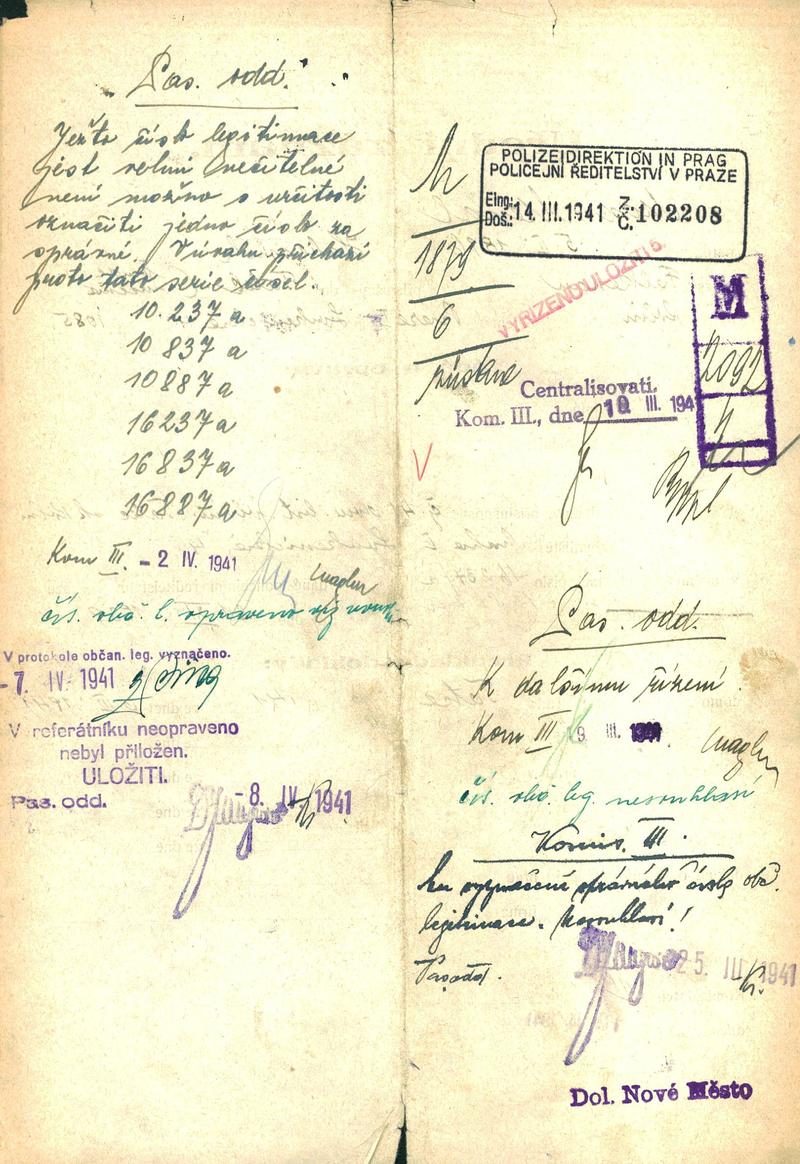 Pas. odd.
Ježto číslo legitimace
jest velmi nečitelné
není možno s určitostí
označiti jedno číslo za
správné. V úvahu přichází
proto tato serie čísel.
10.237 a
10 837 a
10887 a
16237 a
16 837 a
16887 a
Kom III. - 2 IV. 1941
čís. obč. l. opraveno
V protokole občan. leg. vyznačeno.
-7. IV. 1941
V referátníku neopraveno
nebyl přiložen.
ULOŽITI.
Pas. odd.
-8. IV. 1941
POLIZEIDIREKTION IN PRAG
POLICEJNÍ ŘEDITELSTVÍ V PRAZE
Eing.:
Doš.: 14. III. 1941 Z. Č. 102208
1879
6
VYŘÍZENO ULOŽITI
M
2092
4
Centralisovati.
Kom. III., dne 10 III. 194
V
Pas. odd.
K dalšímu řízení
Kom III 9 III. 1941
čís. obč. leg. nesouhlasí
Komis. III.
ku vyznačení správného čísla obč.
legitimace. Nesouhlasí!
Pas. odd.
25. III. 1941
Dol. Nové Město